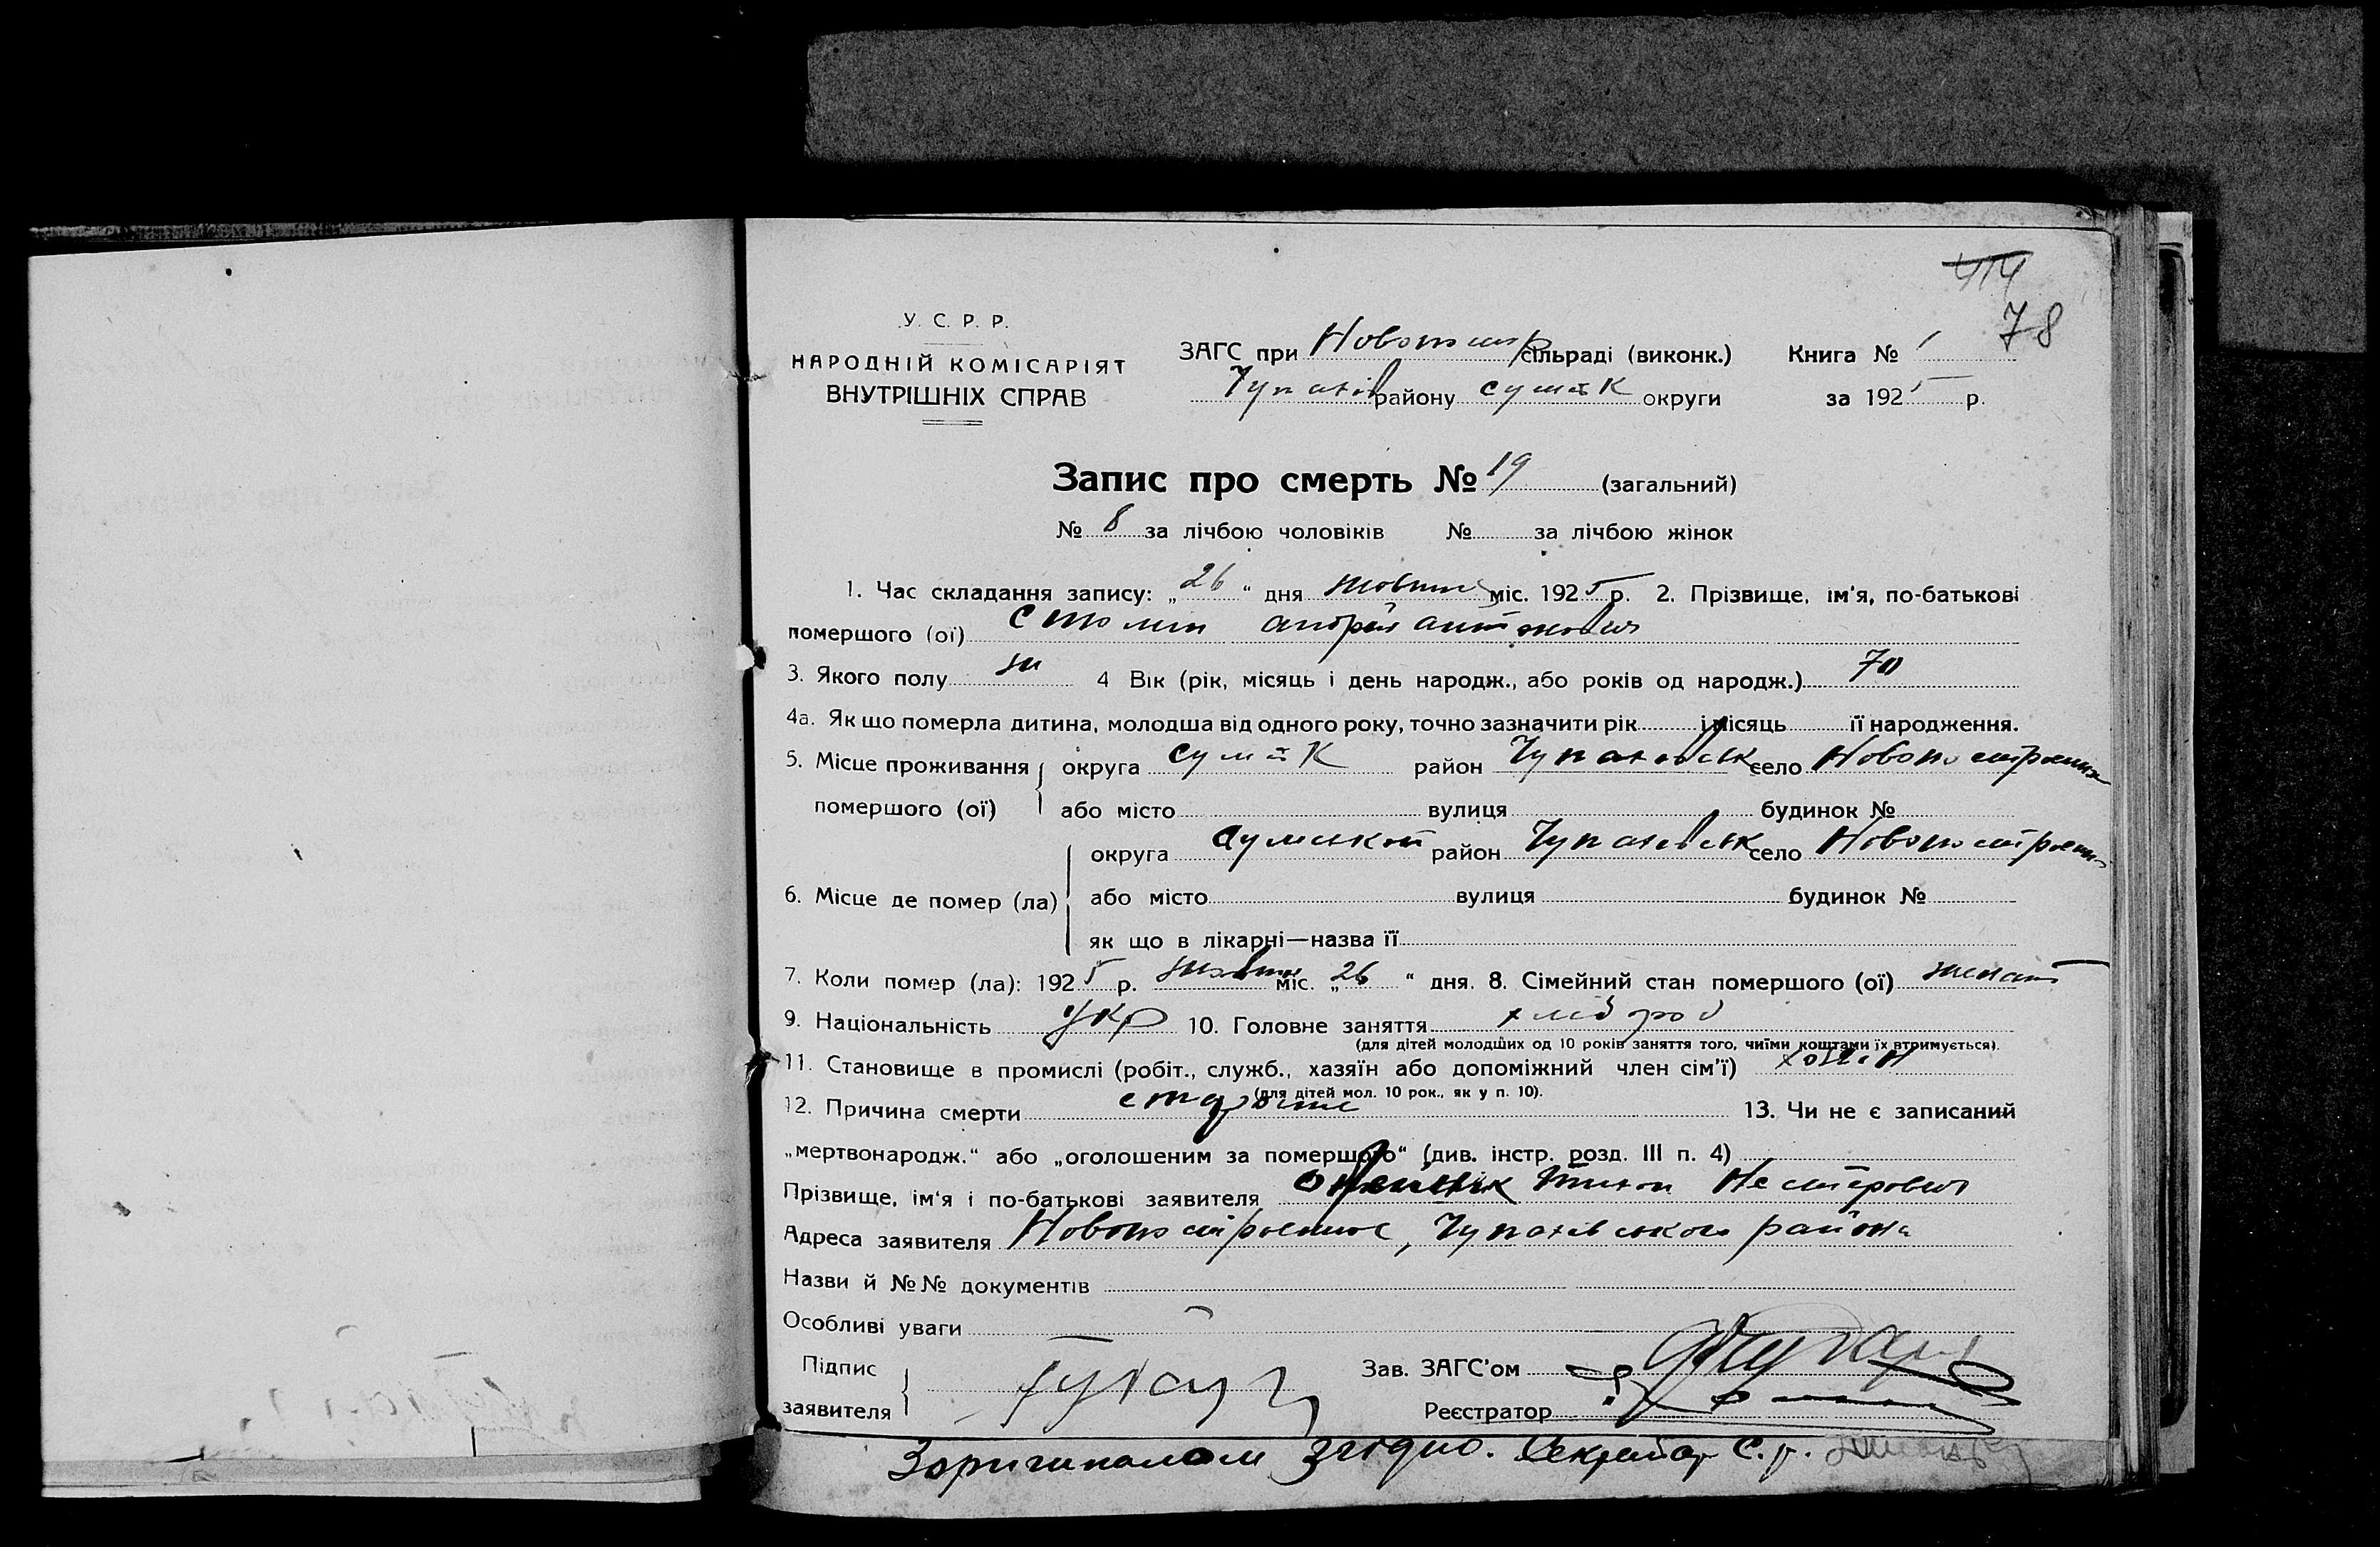 414
78
У. С. Р. Р.
НАРОДНІЙ КОМІСАРІЯТ
ВНУТРІШНІХ СПРАВ
ЗАГС при Новопостр сільраді (виконк.) Книга № 1
Чупахів району Сумськ округи за 1925 р.
Запис про смерть № 19 (загальний)
№ 8 за лічбою чоловіків № за лічбою жінок
1. Час складання запису: „26“ дня жовтня міс. 1925 р. 2. Прізвище, ім'я, по-батькові
помершого (ої) андрій антонович
3. Якого полу 4 Вік (рік, місяць і день народж., або років од народж.) 70
4а. Як що померла дитина, молодша від одного року, точно зазначити рік і місяць її народження.
5. Місце проживання округа Сумськ район Чупахівськ село Новопостроєння
помершого (ої) або місто вулиця будинок №
округа Сумської район Чупахівськ село
6. Місце де помер (ла) або місто вулиця будинок №
як що в лікарні—назва її
7. Коли помер (ла): 1925 р. жовтн міс. „26“ дня. 8. Сімейний стан помершого (ої) женат
9. Національність Укр 10. Головне заняття хлібороб
(для дітей молодших од 10 років заняття того, чиїми коштами їх втримується).
11. Становище в промислі (робіт., служб., хазяїн або допоміжний член сім'ї) хозяїн
(для дітей мол. 10 рок., як у п. 10).
12. Причина смерти 13. Чи не є записаний
„мертвонародж.“ або „оголошеним за помершого“ (див. інстр. розд. III п. 4)
Прізвище, ім'я і по-батькові заявителя Нестерович
Адреса заявителя , Чупахівського района
Назви й №№ документів
Особливі уваги
Підпис Зав. ЗАГС'ом
заявителя Реєстратор
Зоригиналом Згідно. Секретар С.р.